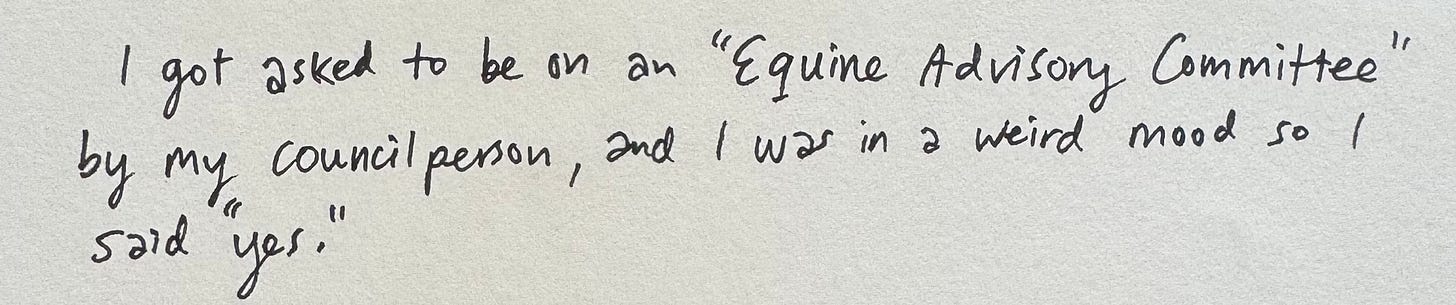 I got asked to be on an "Equine Advisory Committee"
by my councilperson, and I was in a weird mood so I
said "yes."